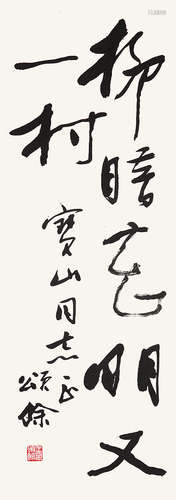 柳暗花明又
一村
寶山同志正
頌餘